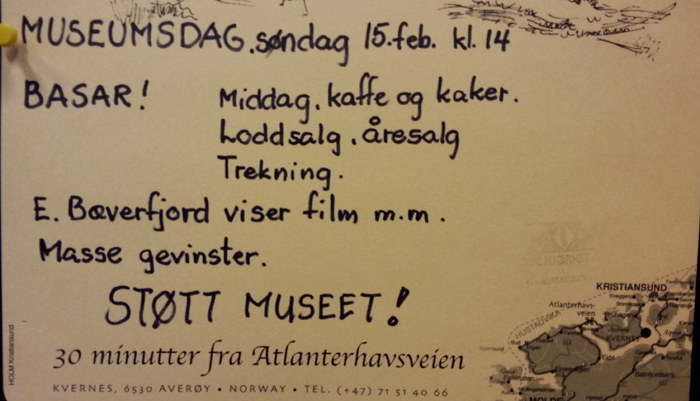 MUSEUMSDAG. søndag 15. feb. kl. 14
BASAR! Middag. kaffe og kaker.
Loddsalg. åresalg
Trekning.
E. Bæverfjord viser film m.m.
Masse gevinster.
STØTT MUSEET!
30 minutter fra Atlanterhavsveien
KVERNES, 6530 AVERØY • NORWAY • TEL. (+47) 71 51 40 66
HOLM Kristiansund
KRISTIANSUND
Atlanterhavs-
veien
HUSTADVIKA
KVERNES
Eide
MOLDE